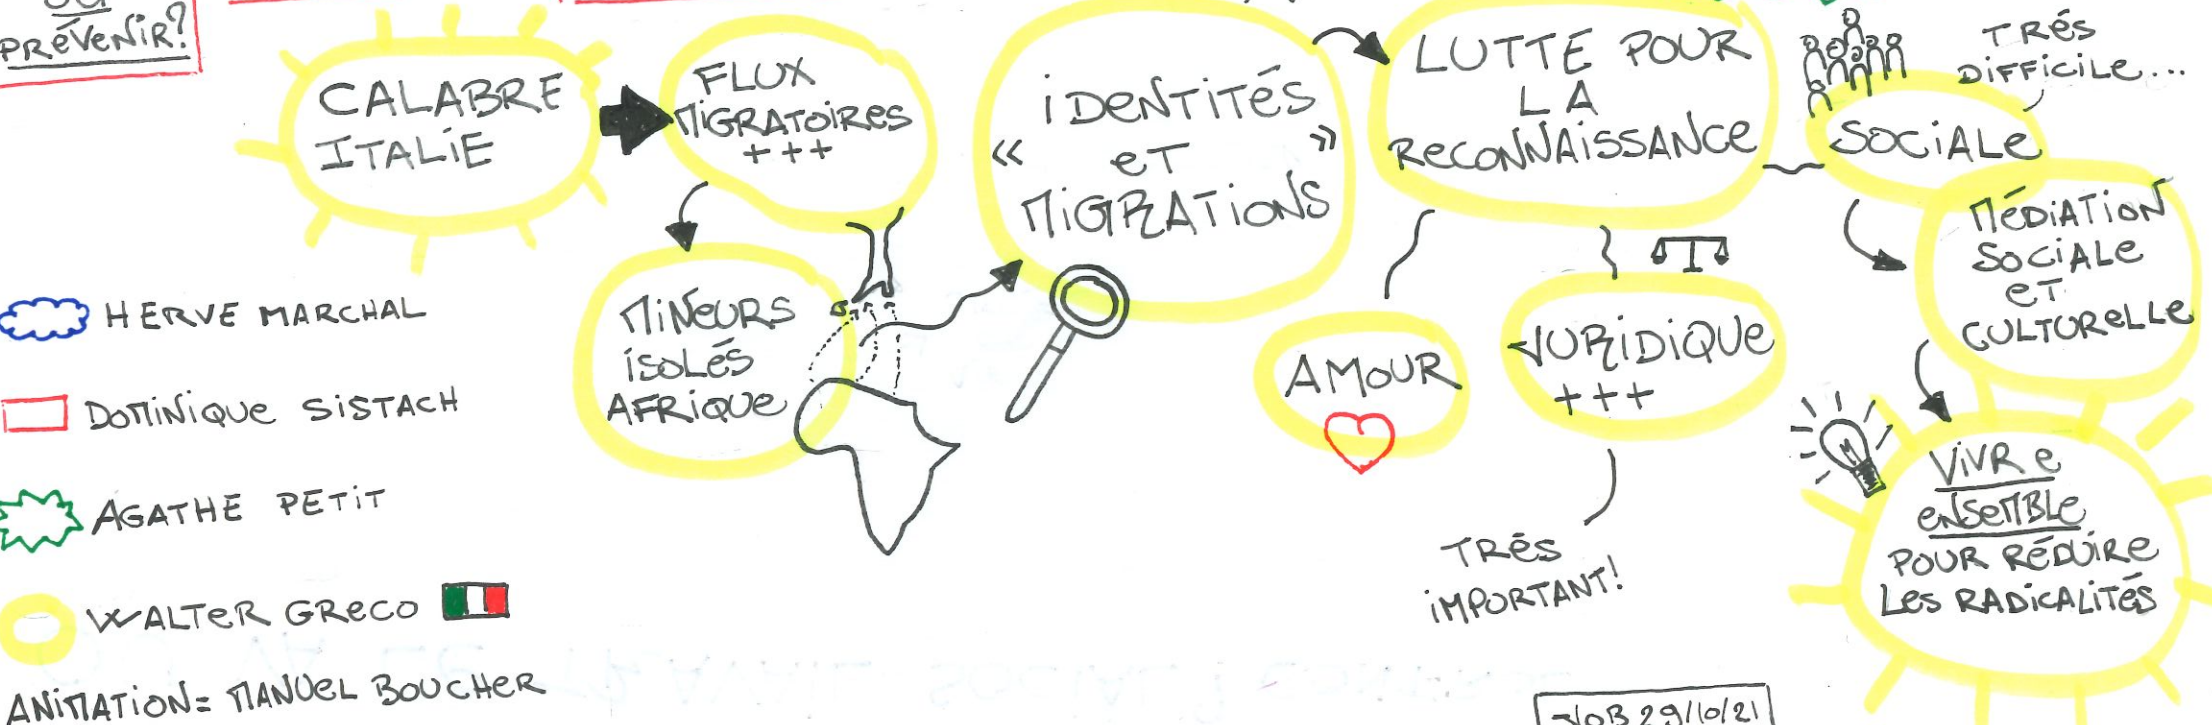 PRÉVENIR?
CALABRE
ITALIE
FLUX
MIGRATOIRES
+++
MINEURS
ISOLÉS
AFRIQUE
IDENTITÉS
« ET »
MIGRATIONS
LUTTE POUR
LA
RECONNAISSANCE
AMOUR
JURIDIQUE
+++
TRÉS
IMPORTANT!
TRÉS
DIFFICILE...
SOCIALE
MÉDIATION
SOCIALE
ET
CULTURELLE
VIVRE
ENSEMBLE
POUR RÉDUIRE
LES RADICALITÉS
HERVE MARCHAL
DOMINIQUE SISTACH
AGATHE PETIT
WALTER GRECO
ANIMATION= MANUEL BOUCHER
29/10/21